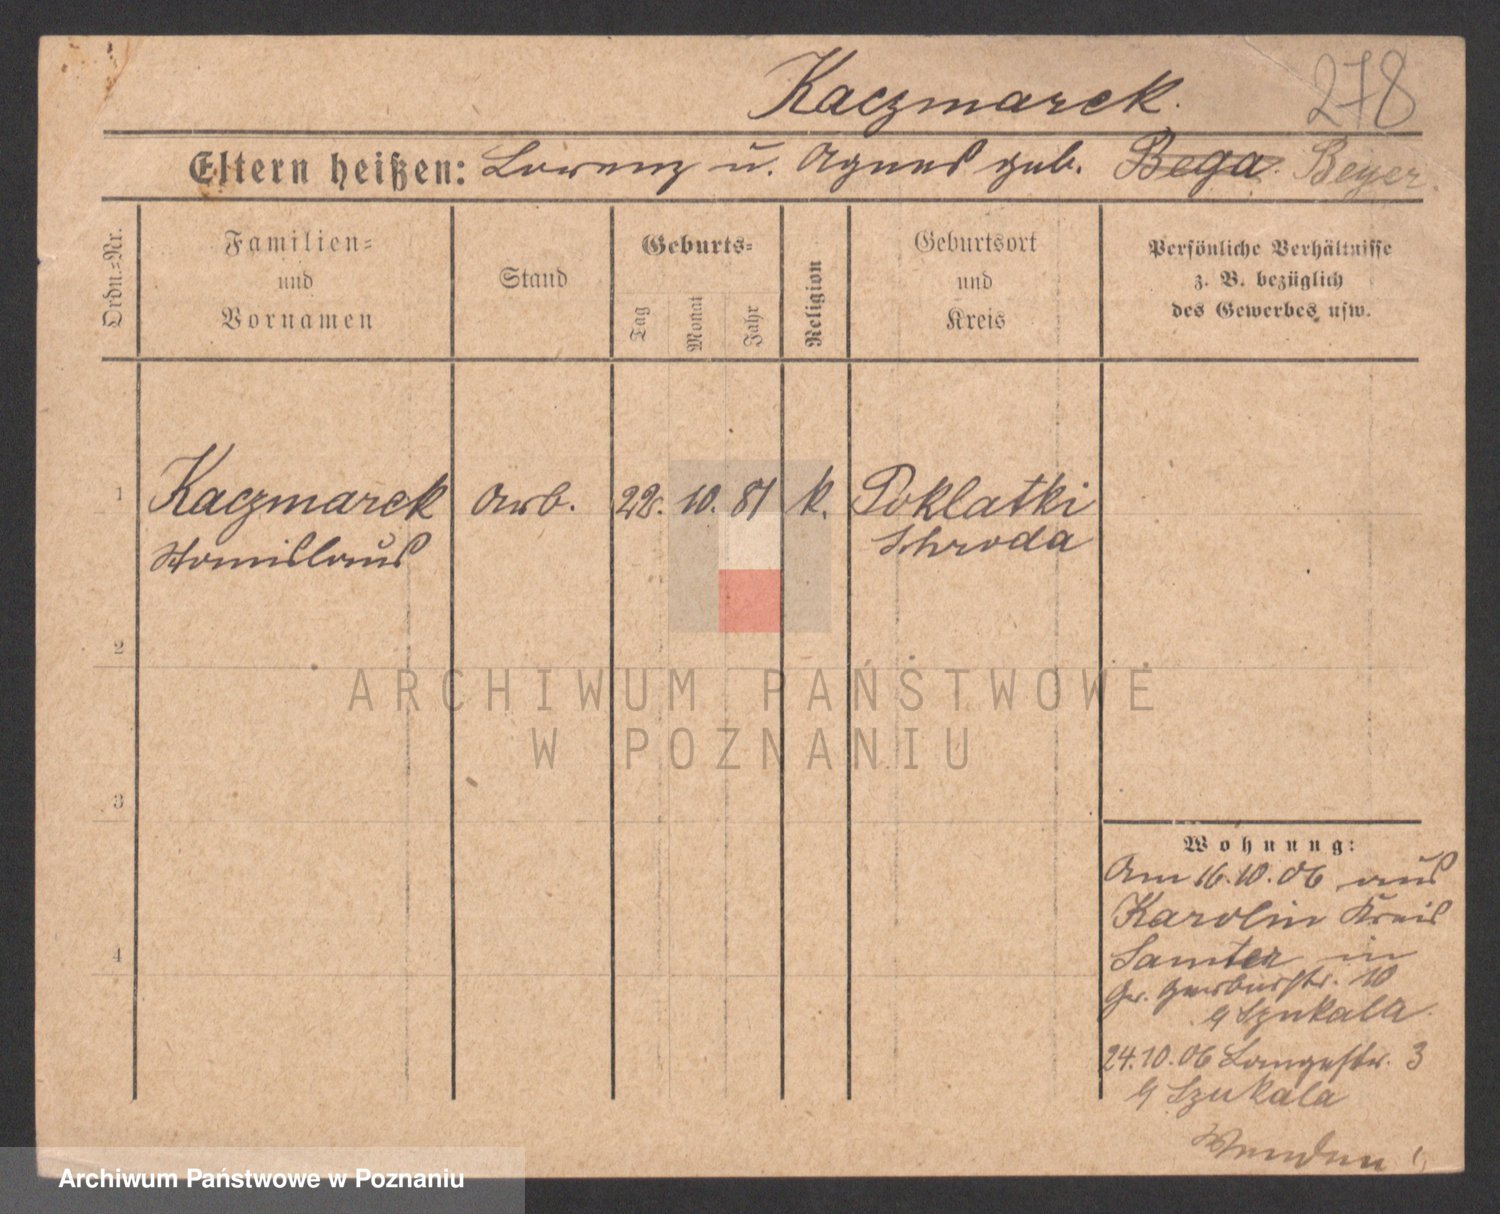 Kaczmarek.
278
Eltern heißen: Lorenz u. Agnes geb. Bega. Beyer.
Ordn.=Nr.
Familien=
und
Vornamen
Stand
Geburts=
Tag
Monat
Jahr
Religion
Geburtsort
und
Kreis
Persönliche Verhältnisse
z. B. bezüglich
des Gewerbes usw.
1 Kaczmarek Arb. 22. 10. 81 k. Poklatki
Stanislaus Schroda
2
ARCHIWUM PAŃSTWOWE
W POZNANIU
3
Wohnung:
Am 16.10.06 aus
Karolin Kreis
4 Samter in
Gr. Gerberstr. 10
Szukala.
24.10.06 Langestr. 3
Szukala
Wenden!
Archiwum Państwowe w Poznaniu